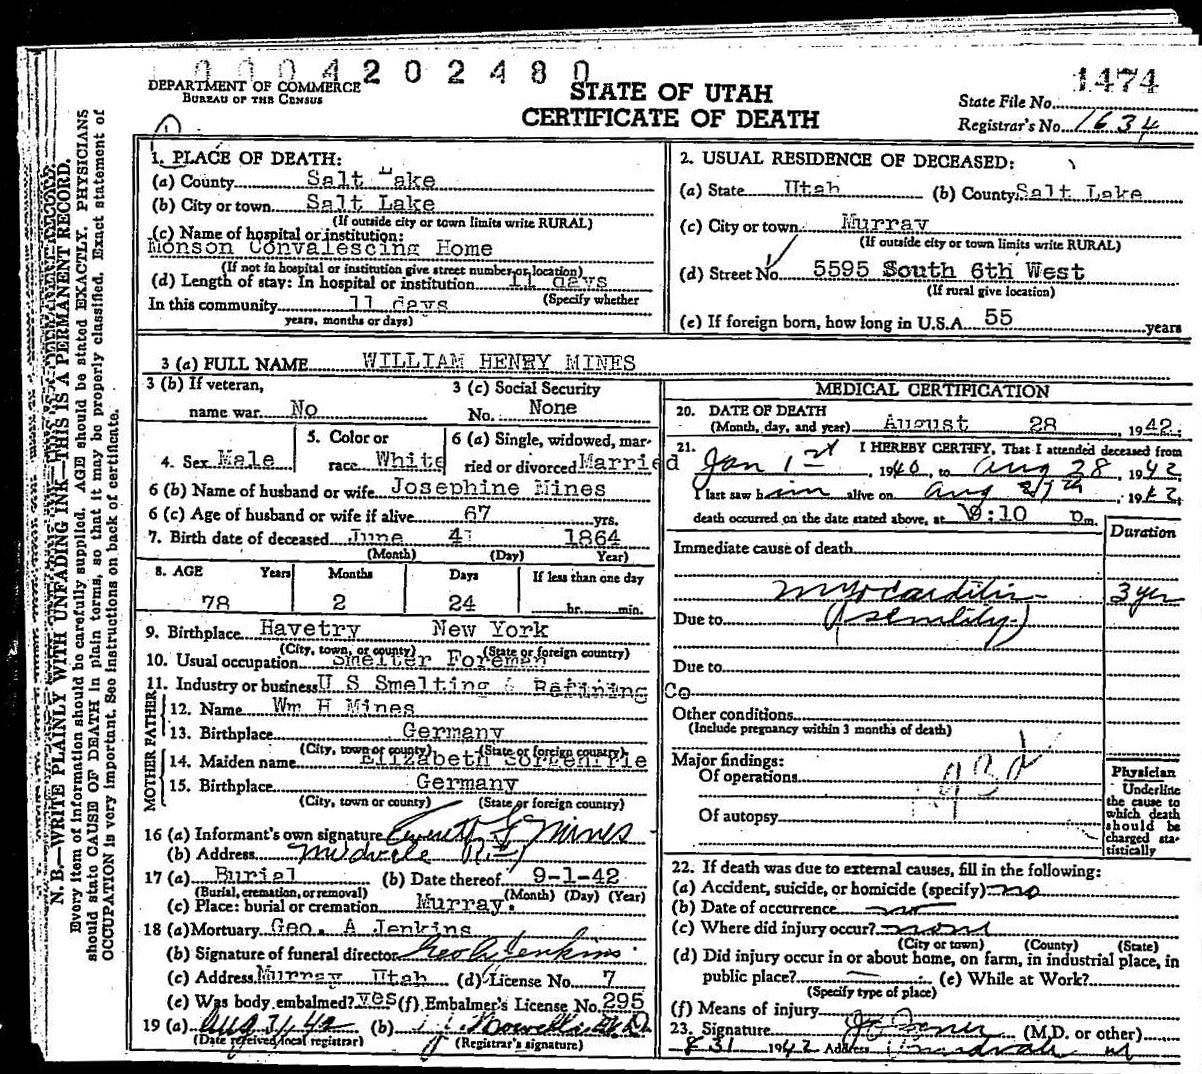 0004202480
DEPARTMENT OF COMMERCE
BUREAU OF THE CENSUS
STATE OF UTAH
CERTIFICATE OF DEATH
1474
State File No.
Registrar's No. 1634
N. B.—WRITE PLAINLY WITH UNFADING INK—THIS IS A PERMANENT RECORD.
Every item of information should be carefully supplied. AGE should be stated EXACTLY. PHYSICIANS
should state CAUSE OF DEATH in plain terms, so that it may be properly classified. Exact statement of
OCCUPATION is very important. See instructions on back of certificate.
1. PLACE OF DEATH:
(a) County Salt Lake
(b) City or town Salt Lake
(If outside city or town limits write RURAL)
(c) Name of hospital or institution:
Monson Convalescing Home
(If not in hospital or institution give street number or location)
(d) Length of stay: In hospital or institution 11 days
(Specify whether
In this community 11 days
years, months or days)
2. USUAL RESIDENCE OF DECEASED:
(a) State Utah (b) County Salt Lake
(c) City or town Murray
(If outside city or town limits write RURAL)
(d) Street No. 5595 South 6th West
(If rural give location)
(e) If foreign born, how long in U.S.A. 55 years
3 (a) FULL NAME WILLIAM HENRY MINES
3 (b) If veteran,
name war No
3 (c) Social Security
No. None
4. Sex Male
5. Color or
race White
6 (a) Single, widowed, mar-
ried or divorced Married
6 (b) Name of husband or wife Josephine Mines
6 (c) Age of husband or wife if alive 67 yrs.
7. Birth date of deceased June 4 1864
(Month) (Day) Year)
8. AGE Years Months Days If less than one day
78 2 24 hr. min.
9. Birthplace Havetry New York
(City, town, or county) (State or foreign country)
10. Usual occupation Smelter Foreman
11. Industry or business U S Smelting & Refining Co
FATHER
12. Name Wm H Mines
13. Birthplace Germany
(City, town or county) (State or foreign country)
MOTHER
14. Maiden name Elizabeth
15. Birthplace Germany
(City, town or county) (State or foreign country)
16 (a) Informant's own signature Everett Mines
(b) Address Midvale
17 (a) Burial (b) Date thereof 9-1-42
(Burial, cremation, or removal) (Month) (Day) (Year)
(c) Place: burial or cremation Murray.
18 (a) Mortuary Geo. A Jenkins
(b) Signature of funeral director Geo A Jenkins
(c) Address Murray Utah (d) License No. 7
(e) Was body embalmed? yes (f) Embalmer's License No. 295
19 (a) Aug 31, 42 (b)
(Date received local registrar) (Registrar's signature)
MEDICAL CERTIFICATION
20. DATE OF DEATH
(Month, day, and year) August 28 1942
21. I HEREBY CERTIFY, That I attended deceased from
Jan 1st 1940, to Aug 28, 1942
I last saw him alive on Aug 27th, 1942
death occurred on the date stated above, at :10 Pm.
Duration
Immediate cause of death
Myocarditis 3 yrs
Due to (senility)
Due to
Other conditions
(Include pregnancy within 3 months of death)
Major findings:
Of operations
93d
Of autopsy
Physician
Underline
the cause to
which death
should be
charged sta-
tistically
22. If death was due to external causes, fill in the following:
(a) Accident, suicide, or homicide (specify) no
(b) Date of occurrence
(c) Where did injury occur?
(City or town) (County) (State)
(d) Did injury occur in or about home, on farm, in industrial place, in
public place? (e) While at Work?
(Specify type of place)
(f) Means of injury
23. Signature (M.D. or other)
8 31 1942 Address Midvale